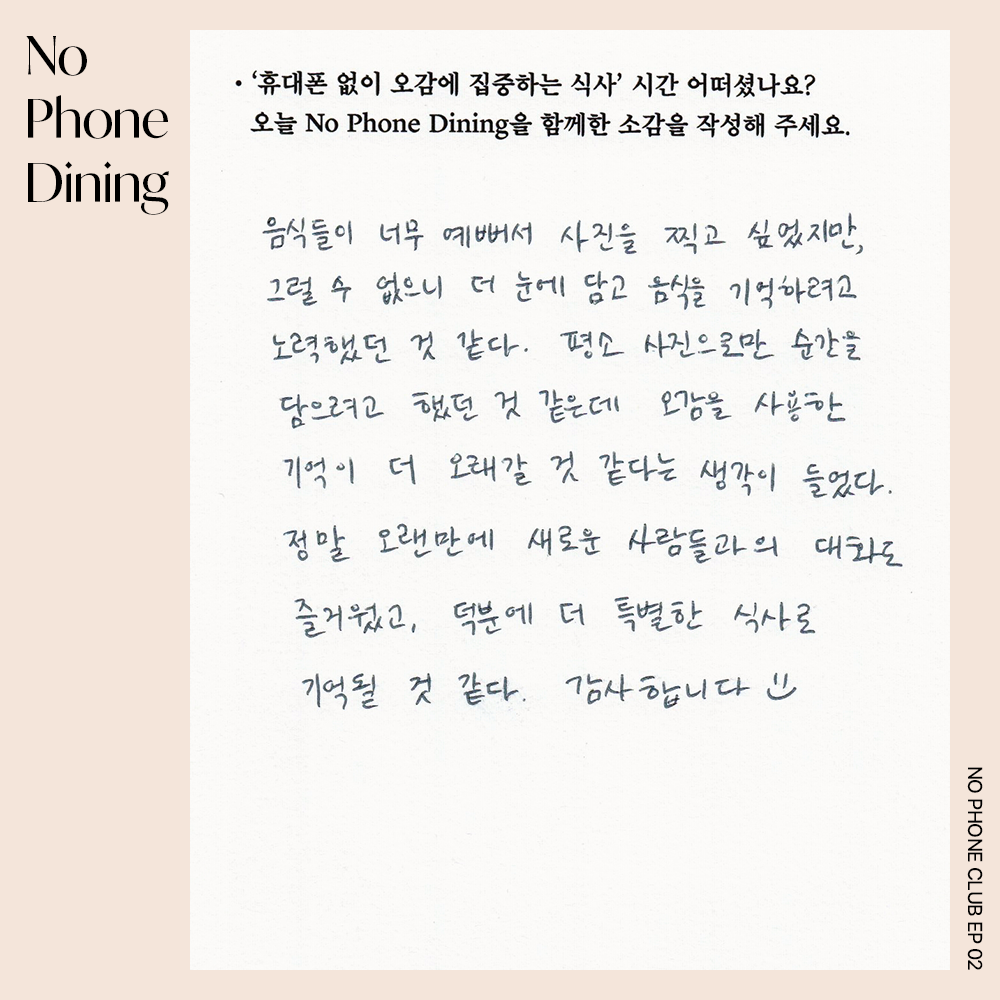 No
Phone
Dining
• ‘휴대폰 없이 오감에 집중하는 식사’ 시간 어떠셨나요?
오늘 No Phone Dining을 함께한 소감을 작성해 주세요.
음식들이 너무 예뻐서 사진을 찍고 싶었지만,
그럴 수 없으니 더 눈에 담고 음식을 기억하려고
노력했던 것 같다. 평소 사진으로만 순간을
담으려고 했던 것 같은데 오감을 사용한
기억이 더 오래갈 것 같다는 생각이 들었다.
정말 오랜만에 새로운 사람들과의 대화도
즐거웠고, 덕분에 더 특별한 식사로
기억될 것 같다. 감사합니다
NO PHONE CLUB EP 02